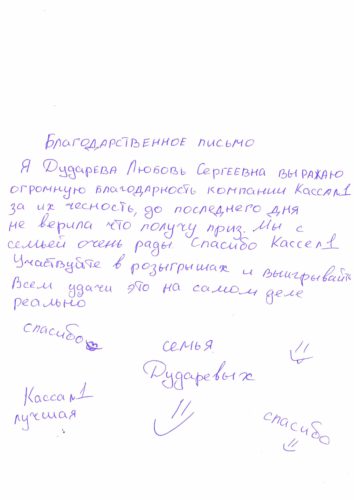 Благодарственное письмо
Я Дударева Любовь Сергеевна выражаю
огромную благодарность компании Касса№1
за их честность, до последнего дня
не верила что получу приз. Мы с
семьей очень рады Спасибо Кассе№1
Участвуйте в розыгришах и выигрывайте
Всем удачи это на самом деле
реально
спасибо
семья
Дударевых
Касса№1
лучшая
спасибо